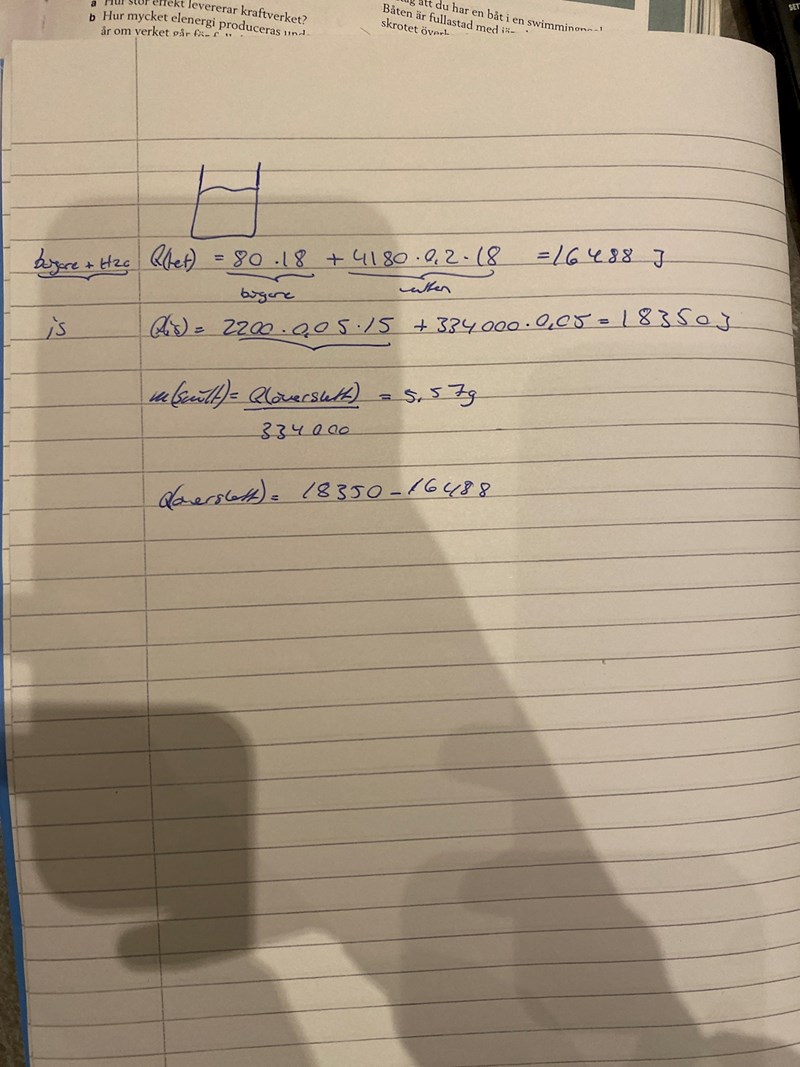 a Hur stor effekt levererar kraftverket?
b Hur mycket elenergi produceras
år om verket går för
att du har en båt i en
Båten är fullastad med
skrotet
bägare + H2O Q(tet) = 80 · 18 + 4180 · 0,2 · 18 = 16488 J
bägare vatten
is Q(is) = 2200 · 0,05 · 15 + 334000 · 0,05 = 18350 J
m(smält) = Q(överskott) = 5,57g
334000
Q(överskott) = 18350 - 16488